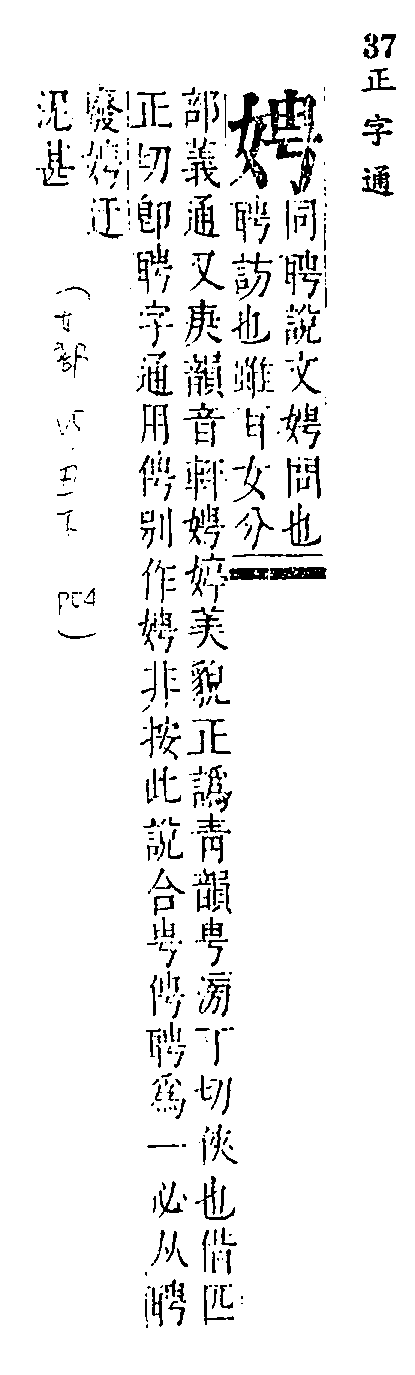 37正字通
娉同聘說文娉問也
聘訪也雖耳女分
部義通又庚韻音軿娉婷美貌正譌靑韻甹滂丁切俠也借匹
正切卽聘字通用俜别作娉非按此說合甹俜聘爲一必从聘
廢娉迂
泥甚
(女部 丑下